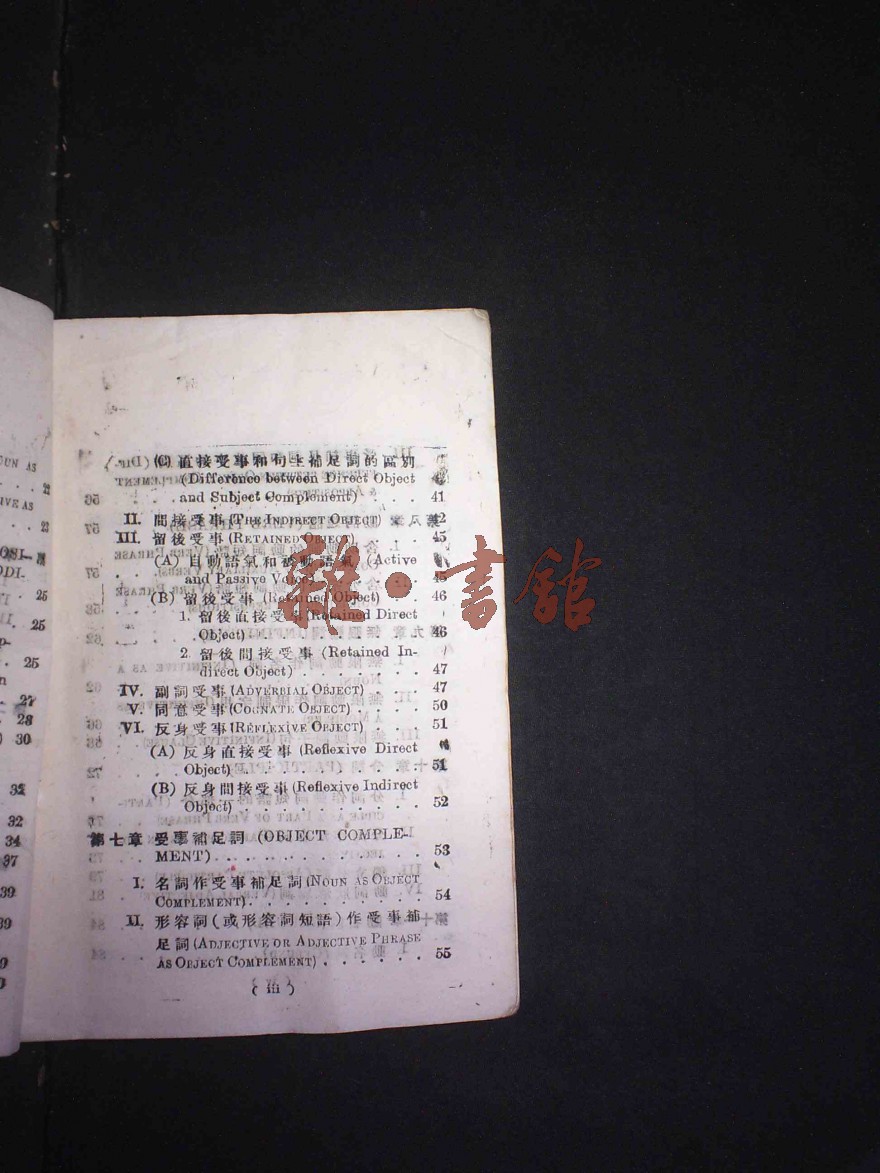 OUN AS
22
IVE AS
23
OSI-
ODI-
25
25
p-
25
n
27
28
) 30
32
32
34
37
39
39
(C) 直接受事和句主補足詞的區別
(Difference between Direct Object
and Subject Complement) . . . . 41
II. 間接受事 (THE INDIRECT OBJECT) . . 42
III. 留後受事 (RETAINED OBJECT) . . . . 45
(A) 自動語氣和被動語氣 (Active
and Passive Voice) . . . . . . 45
(B) 留後受事 (Retained Object) . . 46
1. 留後直接受事 (Retained Direct
Object) . . . . . . . . . . 46
2. 留後間接受事 (Retained In-
direct Object) . . . . . . . 47
IV. 副詞受事 (ADVERBIAL OBJECT) . . . 47
V. 同意受事 (COGNATE OBJECT) . . . . 50
VI. 反身受事 (REFLEXIVE OBJECT) . . . 51
(A) 反身直接受事 (Reflexive Direct
Object) . . . . . . . . . . . 51
(B) 反身間接受事 (Reflexive Indirect
Object) . . . . . . . . . . . 52
第七章 受事補足詞 (OBJECT COMPLE-
MENT) . . . . . . . . . . . . . . 53
I. 名詞作受事補足詞 (NOUN AS OBJECT
COMPLEMENT) . . . . . . . . . . 54
II. 形容詞 (或形容詞短語) 作受事補
足詞 (ADJECTIVE OR ADJECTIVE PHRASE
AS OBJECT COMPLEMENT) . . . . . . 55
( iii )
雜·書館